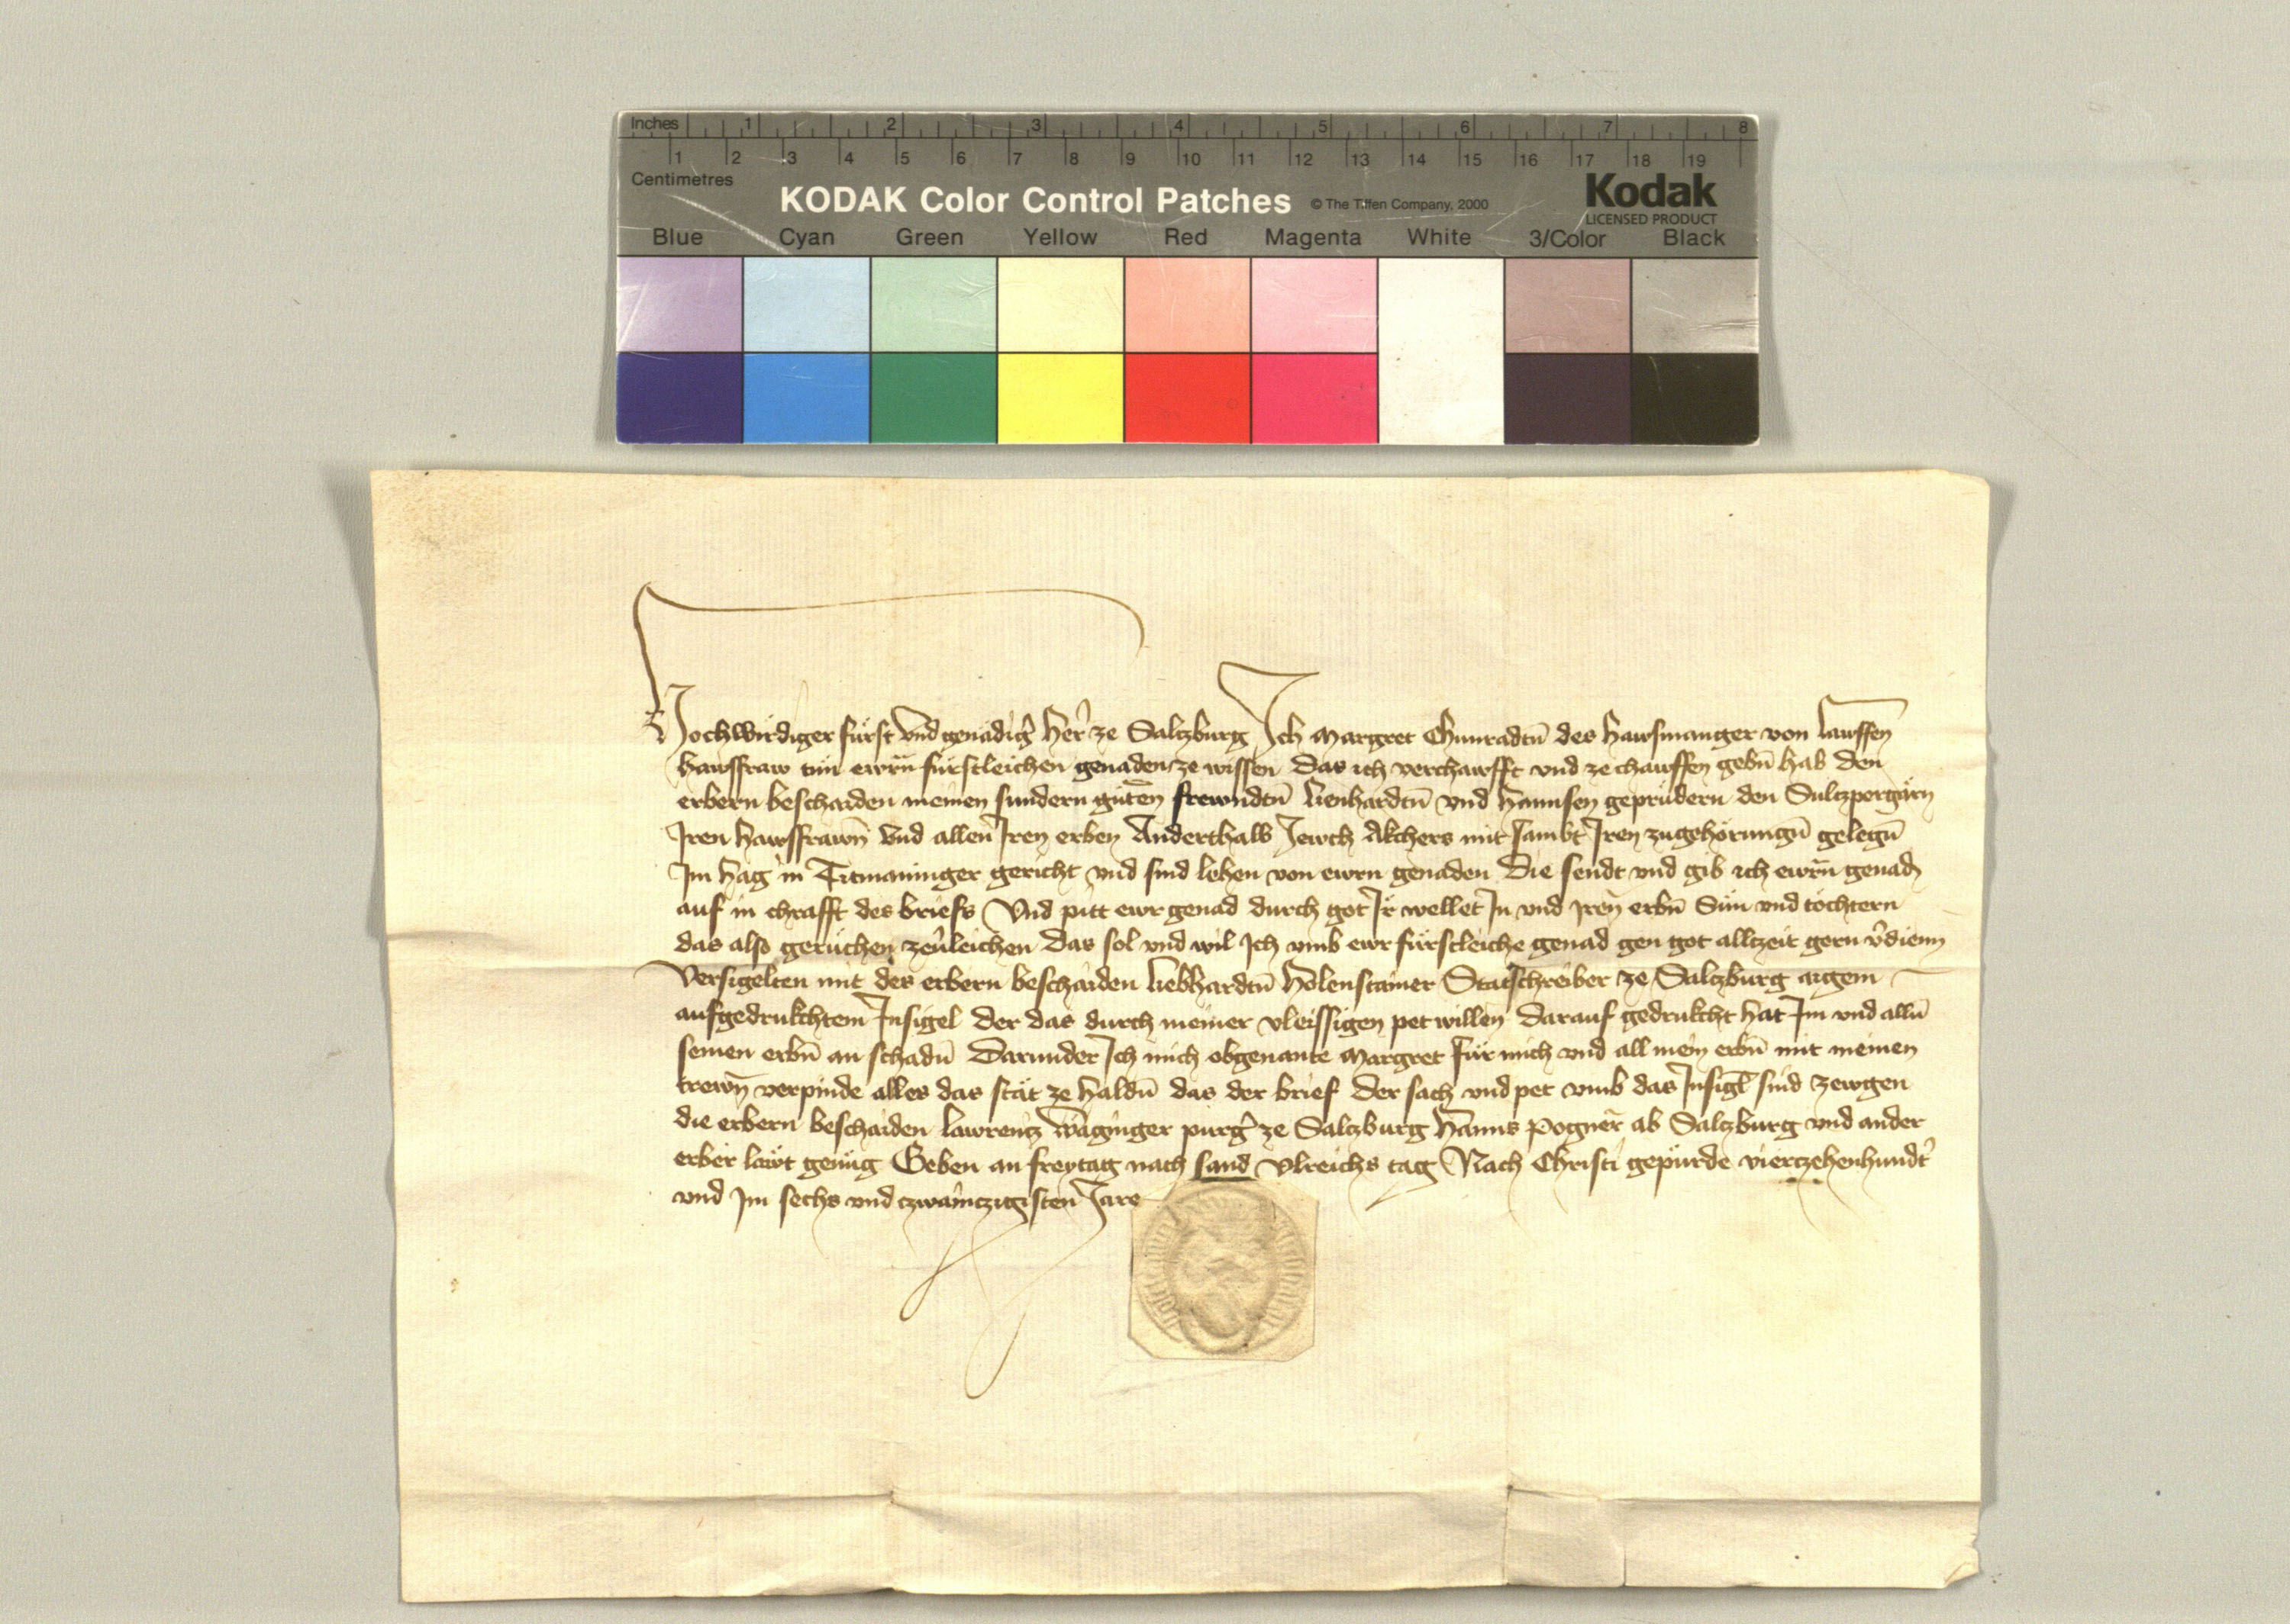 Inches 1 2 3 4 5 6 7 8
1 2 3 4 5 6 7 8 9 10 11 12 13 14 15 16 17 18 19
Centimetres
KODAK Color Control Patches © The Tiffen Company, 2000 Kodak
LICENSED PRODUCT
Blue Cyan Green Yellow Red Magenta White 3/Color Black
Hochwirdiger fürst vnd genädig̉ her̉ ze Salczburg Ich Margret Chunradtn̄ des Hawsmanger von Lawffen
hawsfraw tün ewrn̄ fürstleichen genaden ze wissen Das ich verchawfft vnd ze chawffen gebn̄ hab den
erbern beschaiden meinen sundern gůten frewndtn̄ Lienhardtn̄ vnd Hannsen geprüdern den Sulczpergärn
Iren hawsfrawn̄ Vnd allen Iren erben Anderthalb Jewch Akchers mit sambt Iren zugehörungn̄ gelegn̄
Im Hag in Titmaninger gericht vnd sind lehen von ewrn genaden Die sendt vnd gib ich ewrn̄ genadn̄
auf in chrafft des briefs Vnd pitt ewr genad durch got Ir wellet In vnd Iren̄ erbn̄ Sün vnd töchtern
das also gerüchen zeuleichen Das sol vnd wil Ich vmb ewr fürstleiche genad gen got allczeit gern v̉dienn
Versigelten mit des erbern beschaiden Liebhardtn̄ Holenstainer Statschreiber ze Salczburg aigem
aufgedrukchtem Insigel der das durch meiner vleissigen pet willen Darauf gedrukcht hat Im vnd alln̄
seinen erbn̄ an schadn̄ Darunder Ich mich obgenante Margret für mich vnd all mein erbn̄ mit meinen
trewn̄ verpinde alles das stät ze haldn̄ das der brief Der sach vnd pet vmb das Insigl̄ sind zewgen
die erbern beschaiden Lawrencz Wäginger purg̉ ze Salczburg Hanns Pogner̄ ab Salczburg vnd ander
erber läwt genüg Geben an freytag nach sand Vlreichs tag Nach Christi gepürde vierczehenhundt̉
vnd Im sechs vnd czwainczigisten Jare